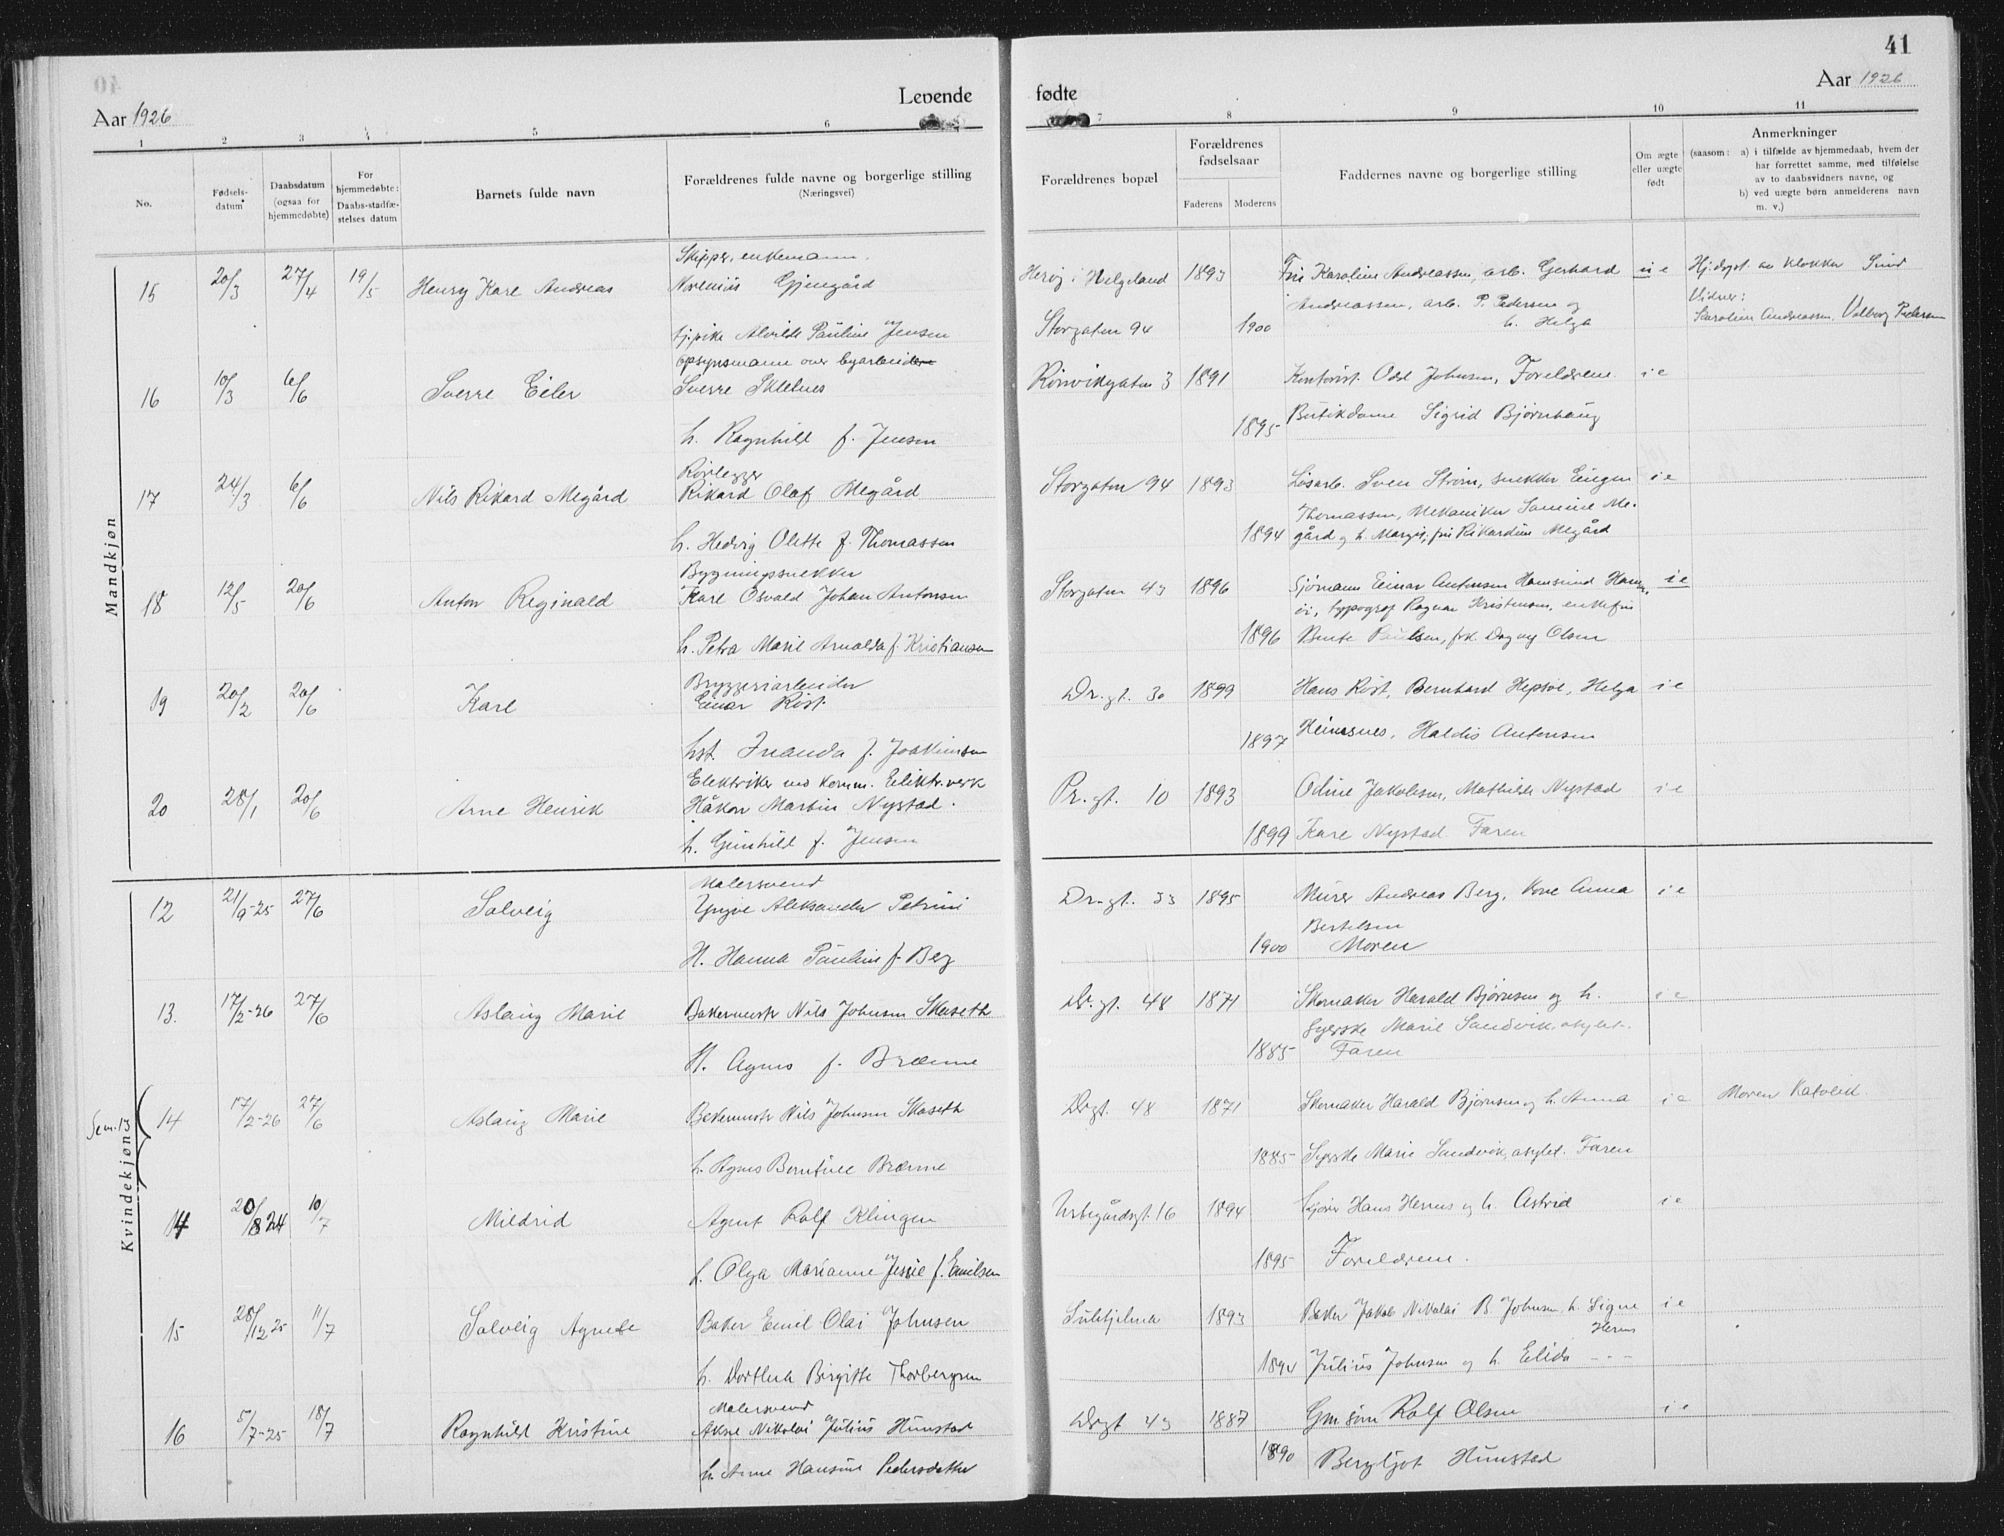 41
Levende
fødte
Aar 1926
Aar 1926
1 2 3 4 5 6
7 8 9 10 11
No.
Fødsels-
datum
Daabsdatum
(ogsaa for
hjemmedøbte)
For
hjemmedøbte:
Daabs-stadfæ-
stelses datum
Barnets fulde navn
Forældrenes fulde navne og borgerlige stilling
(Næringsvei)
Forældrenes bopæl
Forældrenes
fødselsaar
Faderens
Moderens
Faddernes navne og borgerlige stilling
Om ægte
eller uægte
født
Anmerkninger
(saasom: a) i tilfælde av hjemmedaab, hvem der
har forrettet samme, med tilføielse
av to daabsvidners navne, og
b) ved uægte børn anmelderens navn
m. v.)
Mandkjøn
Skipper, enkemann.
15 20/3 27/4 19/5 Henry Kare Andreas Gjengård
Herøj i Helgeland 1893 Karoline Andreassen, arb. Gerhard u e Hj.døpt av klokker
Andreassen, arb. P. Pedersen og
Vidner:
h. Helga
Karoline Andreassen, Valborg Pedersen
tj.pike Alvilde Pauline Jensen
Storgaten 94 1900
opsynsmann over byarbeidere
16 10/3 6/6 Sverre Eiler Sverre
Rønvikgaten 3 1891 Kontorist Odd Johnsen, Foreldrene i e
h. Ragnhild f. Jensen
1895 Butikdame Sigrid Bjørnhaug
Rørlegger
17 24/3 6/6 Nils Rikard Megård Rikard Olaf Megård
Storgaten 94 1893 Løsarb. Sven Strøm, snekker Eugen i e
Thomassen, Mekaniker Me-
h. Hedvig Olette f. Thomassen
1894 gård og h. Margit, fru Rikardine Megård
Bygningssnekker
18 12/5 20/6 Anton Reginald Karl Osvald Johan Antonsen
Storgaten 43 1896 Sjømann Einar Antonsen i e
typograf Ragnar Kristensen, enkefru
h. Petra Marie Arnolda f. Kristiansen
1896 Paulsen, frk. Dagny Olsen
Bryggeriarbeider
19 20/2 20/6 Kare Einar Røst
Dr.gt. 30 1899 Hans Røst, Bernhard Hepsøe, Helga i e
hst. f. Joakimsen
1897 Heimsnes, Haldis Antonsen
Elektriker ved komm. Elektr.verk
20 28/1 20/6 Arne Henrik Håkon Martin Nystad.
Pr.gt. 10 1893 Odine Jakobsen, Mathilde Nystad i e
h. Gunhild f. Jensen
1899 Kare Nystad Faren
Kvindekjøn
Malersvend
12 21/9-25 27/6 Solveig Yngve Aleksander Petrini
Dr.gt. 33 1895 Murer Andreas Berg, Kone Anna i e
Bertelsen
H. Hanna Pauline f. Berg
1900 Moren
13. 17/2-26 27/6 Aslaug Marie Bakermestr Nils Johnsen Skaseth
Dr.gt. 48 1871 Skomaker Harald Bjørnsen og h. i e
Syerske Marie Sandvik,
H. Agnes f. Brænne
1885 Faren
Sem. 13
14 17/2-26 27/6 Aslaug Marie Bakermestr Nils Johnsen Skaseth
Drgt. 48 1871 Skomaker Harald Bjørnsen og h. Anna i e Moren Katolik
h. Agnes Brænne
1885 Syerske Marie Sandvik, Faren
14 20/8 24 10/7 Mildrid Agent Rolf Klingen
16 1894 Hans Hernes og h. Astrid i e
h. Olga Marianne Jessie f. Emilsen
1895 Foreldrene.
15 28/12 25 11/7 Solveig Agnete Baker Emil Olai Johnsen
Sulitjelma 1893 Baker Jakob Nikolai B. Johnsen, h. Signe i e
Hernes
h. Dorthea Birgitte Thorbergsen
1894 Julius Johnsen og h. Elida
Malersvend
16 5/7-25 18/7 Ragnhild Kristine Nikolai Julius Hunstad
Drgt 43 1887 Rolf Olsen i e
h. Anne Hansine Pedersdatter
1890 Bergljot Hunstad